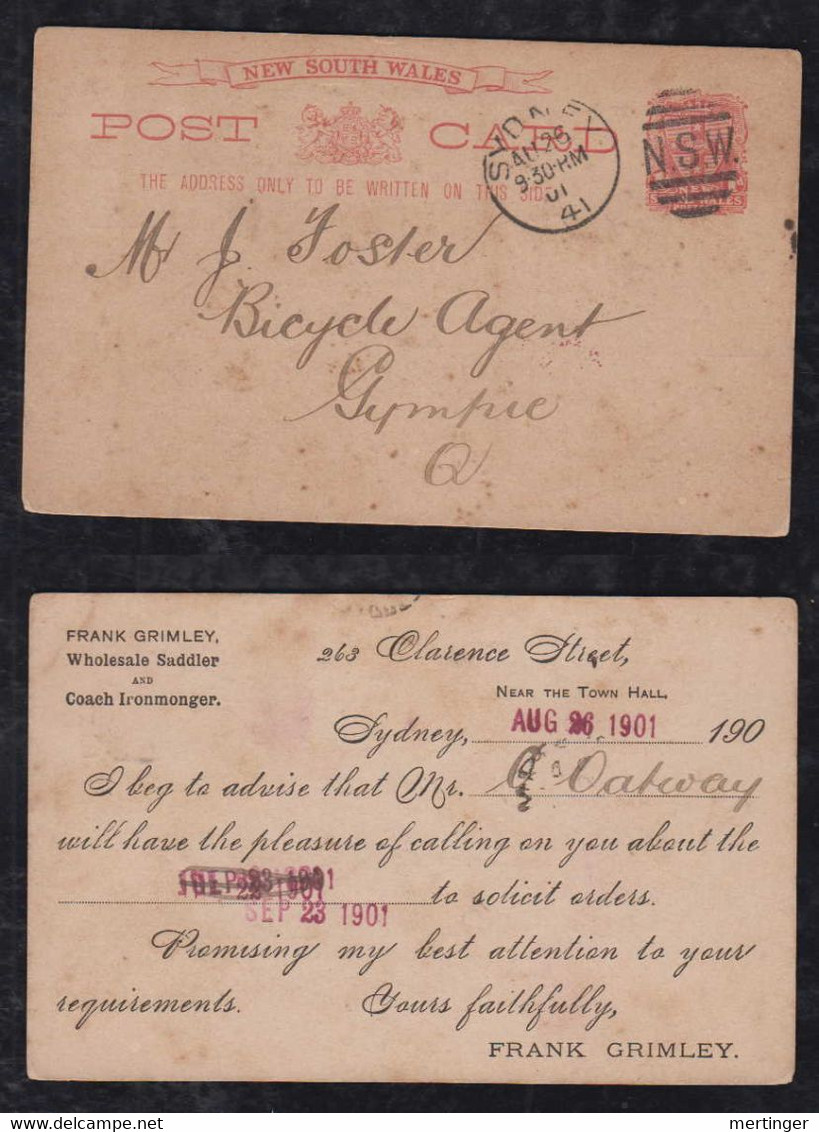 NEW SOUTH WALES
POST CARD
THE ADDRESS ONLY TO BE WRITTEN ON THIS SIDE
SYDNEY
AU 26
9·30 PM
01
41
N.S.W.
NEW
Mr J. Foster
Bicycle Agent
Gympie
Q
FRANK GRIMLEY,
Wholesale Saddler
AND
Coach Ironmonger.
263 Clarence Street,
NEAR THE TOWN HALL,
Sydney, AUG 26 1901 190
I beg to advise that Mr. C. Oatway
will have the pleasure of calling on you about the
SEP 23 1901 to solicit orders.
Promising my best attention to your
requirements. Yours faithfully,
FRANK GRIMLEY.
www.delcampe.net
mertinger